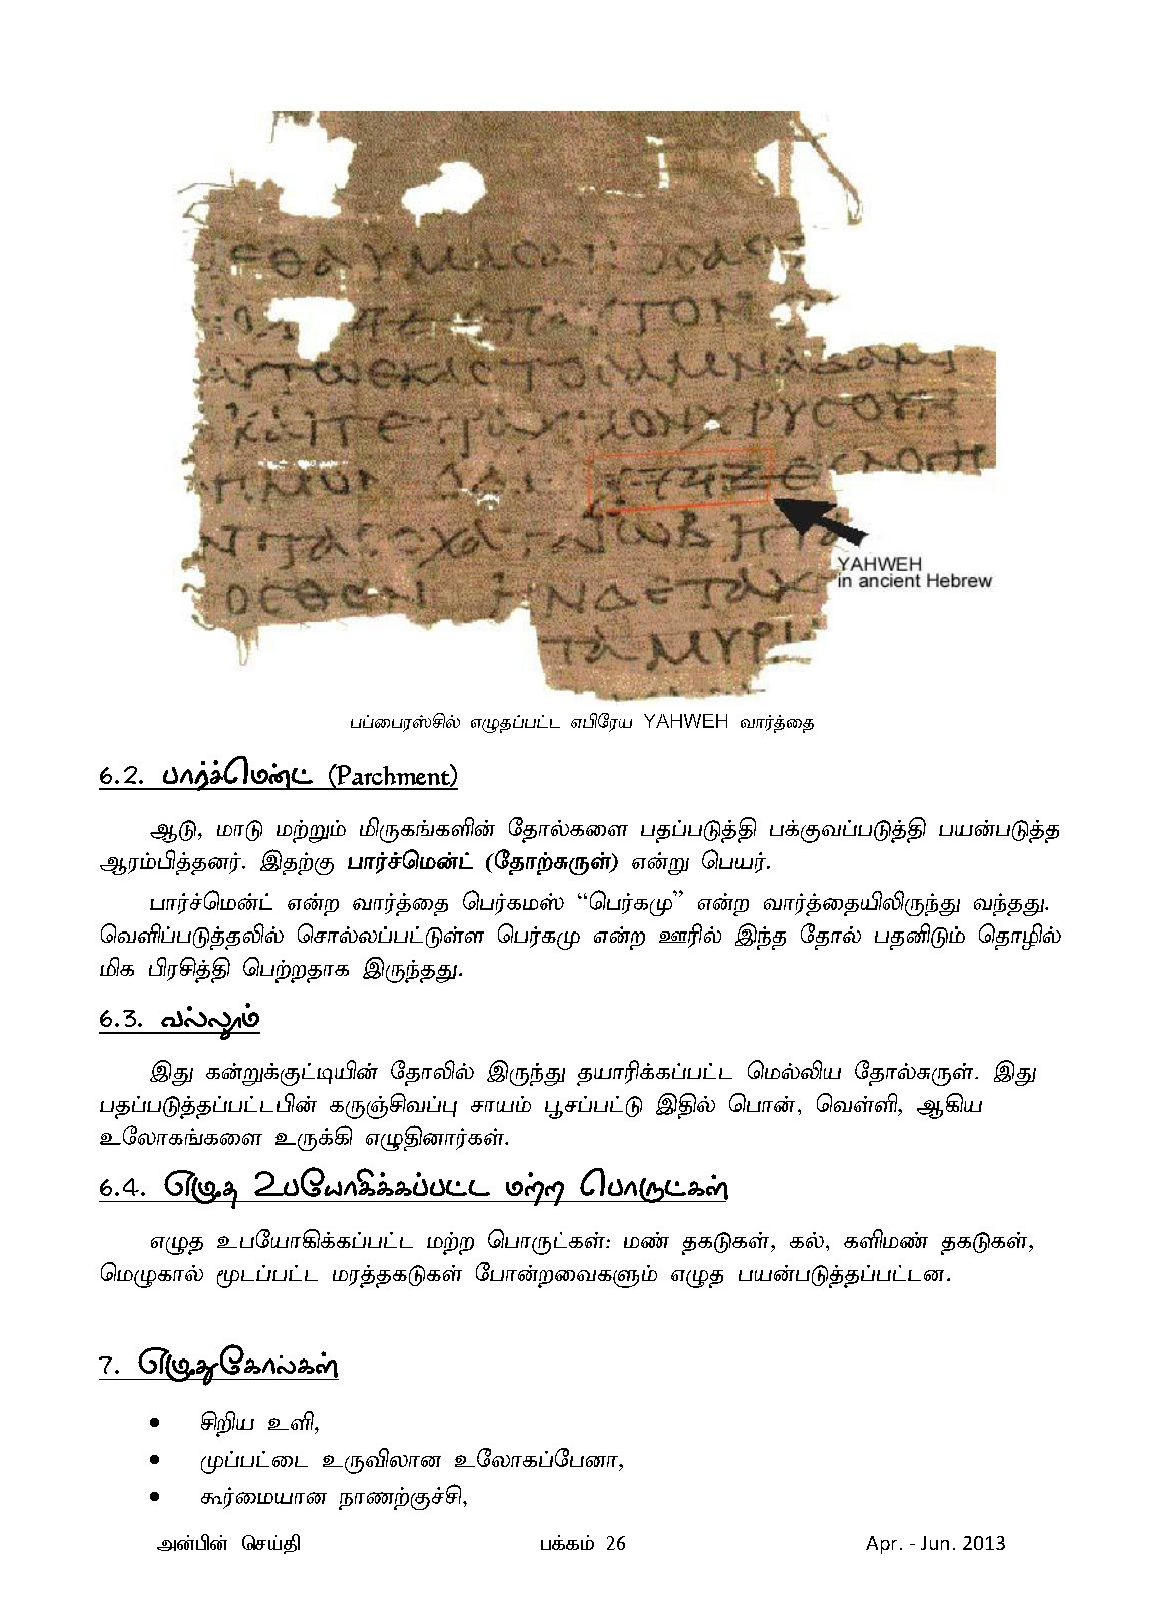 YAHWEH
in ancient Hebrew
பப்பைரஸ்சில் எழுதப்பட்ட எபிரேய YAHWEH வார்த்தை
6.2. பார்ச்மென்ட் (Parchment)
ஆடு, மாடு மற்றும் மிருகங்களின் தோல்களை பதப்படுத்தி பக்குவப்படுத்தி பயன்படுத்த
ஆரம்பித்தனர். இதற்கு பார்ச்மென்ட் (தோற்சுருள்) என்று பெயர்.
பார்ச்மென்ட் என்ற வார்த்தை பெர்கமஸ் “பெர்கமு” என்ற வார்த்தையிலிருந்து வந்தது.
வெளிப்படுத்தலில் சொல்லப்பட்டுள்ள பெர்கமு என்ற ஊரில் இந்த தோல் பதனிடும் தொழில்
மிக பிரசித்தி பெற்றதாக இருந்தது.
6.3. வல்லூம்
இது கன்றுக்குட்டியின் தோலில் இருந்து தயாரிக்கப்பட்ட மெல்லிய தோல்சுருள். இது
பதப்படுத்தப்பட்டபின் கருஞ்சிவப்பு சாயம் பூசப்பட்டு இதில் பொன், வெள்ளி, ஆகிய
உலோகங்களை உருக்கி எழுதினார்கள்.
6.4. எழுத உபயோகிக்கப்பட்ட மற்ற பொருட்கள்
எழுத உபயோகிக்கப்பட்ட மற்ற பொருட்கள்: மண் தகடுகள், கல், களிமண் தகடுகள்,
மெழுகால் மூடப்பட்ட மரத்தகடுகள் போன்றவைகளும் எழுத பயன்படுத்தப்பட்டன.
7. எழுதுகோல்கள்
• சிறிய உளி,
• முப்பட்டை உருவிலான உலோகப்பேனா,
• கூர்மையான நாணற்குச்சி,
அன்பின் செய்தி பக்கம் 26 Apr. - Jun. 2013